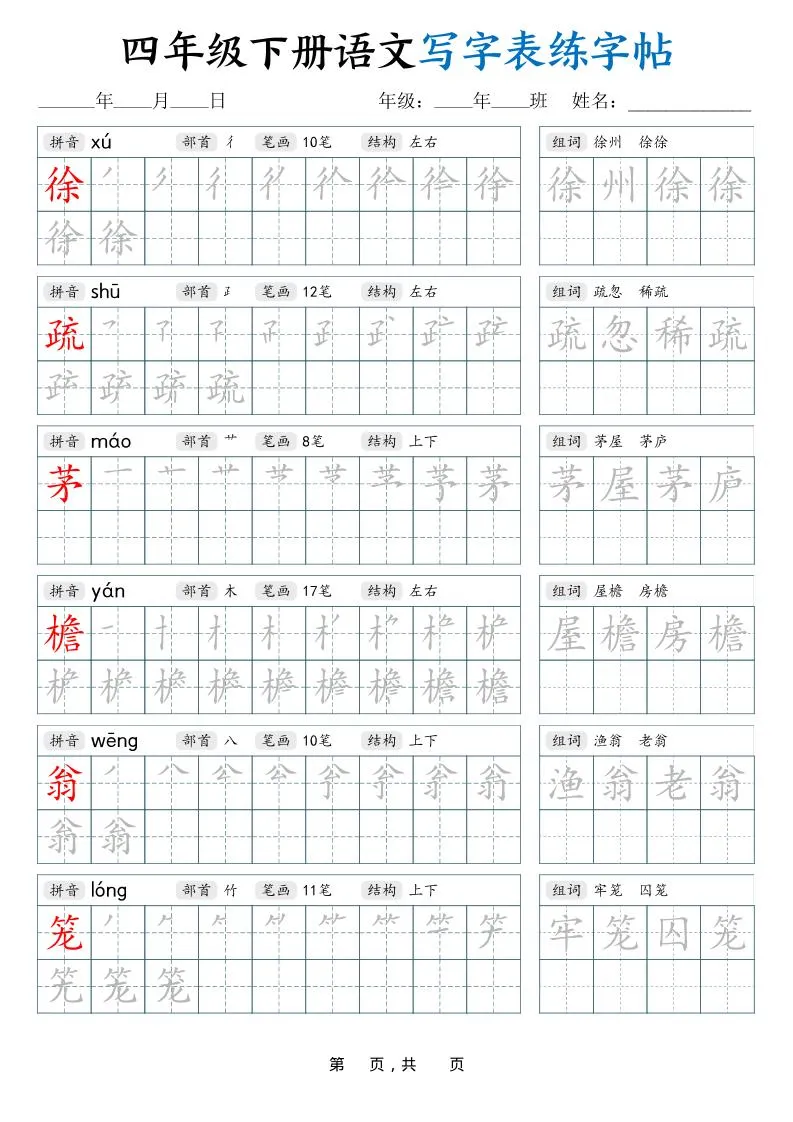 四年级下册语文写字表练字帖
______年____月____日 年级：____年____班 姓名：_____________
拼音 xú 部首 彳 笔画 10笔 结构 左右 组词 徐州 徐徐
徐 徐州徐徐
徐
拼音 shū 部首 𤴔 笔画 12笔 结构 左右 组词 疏忽 稀疏
疏 疏忽稀疏
疏
拼音 máo 部首 艹 笔画 8笔 结构 上下 组词 茅屋 茅庐
茅 茅 茅屋茅庐
拼音 yán 部首 木 笔画 17笔 结构 左右 组词 屋檐 房檐
檐 屋檐房檐
檐
拼音 wēng 部首 八 笔画 10笔 结构 上下 组词 渔翁 老翁
翁 渔翁老翁
翁
拼音 lóng 部首 竹 笔画 11笔 结构 上下 组词 牢笼 囚笼
笼 牢笼囚笼
笼
第 页，共 页